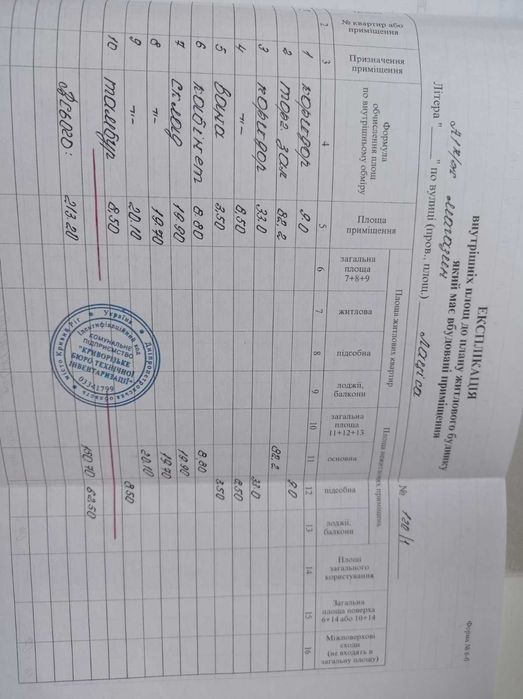 Форма № 6-б
ЕКСПЛІКАЦІЯ
внутрішніх площ до плану житлового будинку
який має вбудовані приміщення
№ 120/1
Літера " " по вулиці (пров., площ.)
№ квартир або приміщення
Призначення приміщення
Формула обчислення площ по внутрішньому обміру
Площа приміщення
Площа житлових квартир
загальна площа 7+8+9
житлова
підсобна
лоджії, балкони
Площа нежитлових приміщень
загальна площа 11+12+13
основна
підсобна
лоджії, балкони
Площі загального користування
Загальна площа поверха 6+14 або 10+14
Міжповерхові сходи (не входять в загальну площу)
2 3 4 5 6 7 8 9 10 11 12 13 14 15 16
1 коридор 9.0 9.0
2 торг. зал 82.2 82.2
3 коридор 33.0 33.0
4 -"- 8.50 8.50
5 Вана 3.50 3.50
6 кабінет 8.80 8.80
7 Склад 19.90 19.90
8 -"- 19.70 19.70
9 -"- 20.10 20.10
10 тамбур 8.50 8.50
Всього: 213.20 150.70 62.50
Україна
Дніпропетровська область
місто Кривий Ріг
Ідентифікаційний код
КОМУНАЛЬНЕ ПІДПРИЄМСТВО
"КРИВОРІЗЬКЕ БЮРО ТЕХНІЧНОЇ ІНВЕНТАРИЗАЦІЇ"
03341799